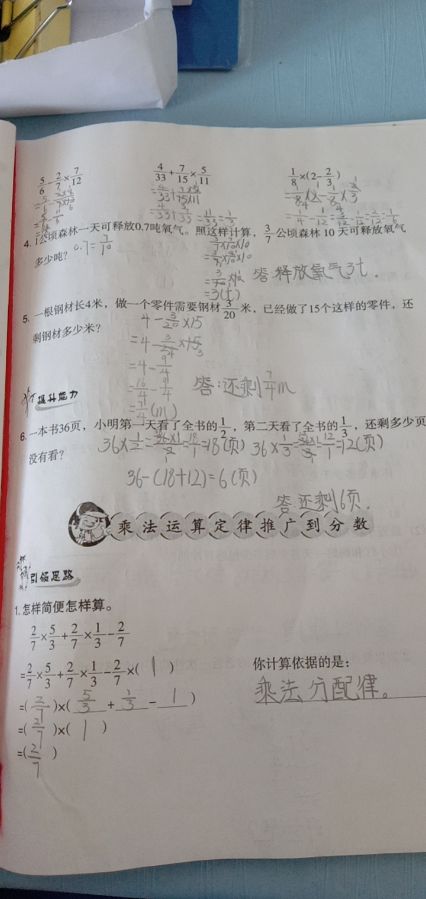 5/6-2/7×7/12 4/33+7/15×5/11 1/8×(2-2/3)
4. 1公顷森林一天可释放0.7吨氧气。照这样计算，3/7公顷森林10天可释放氧气
多少吨？ 0.7=7/10
=3(t) 答释放氧气3t.
5. 一根钢材长4米，做一个零件需要钢材3/20米，已经做了15个这样的零件，还
剩钢材多少米？ 4-3/20×15
=4-3/20×15
=4-9/4
=16/4-9/4 答:还剩7/4m
=7/4(m)
提升能力
6. 一本书36页，小明第一天看了全书的1/2，第二天看了全书的1/3，还剩多少页
没有看？ 36×1/2=36×1/2=18/1=18(页) 36×1/3=36×1/3=12/1=12(页)
36-(18+12)=6(页)
答还剩6页.
乘法运算定律推广到分数
引领思路
1. 怎样简便怎样算。
2/7×5/3+2/7×1/3-2/7
=2/7×5/3+2/7×1/3-2/7×(1) 你计算依据的是：
=(2/7)×(5/3+1/3-1) 乘法分配律。
=(2/7)×(1)
=(2/7)